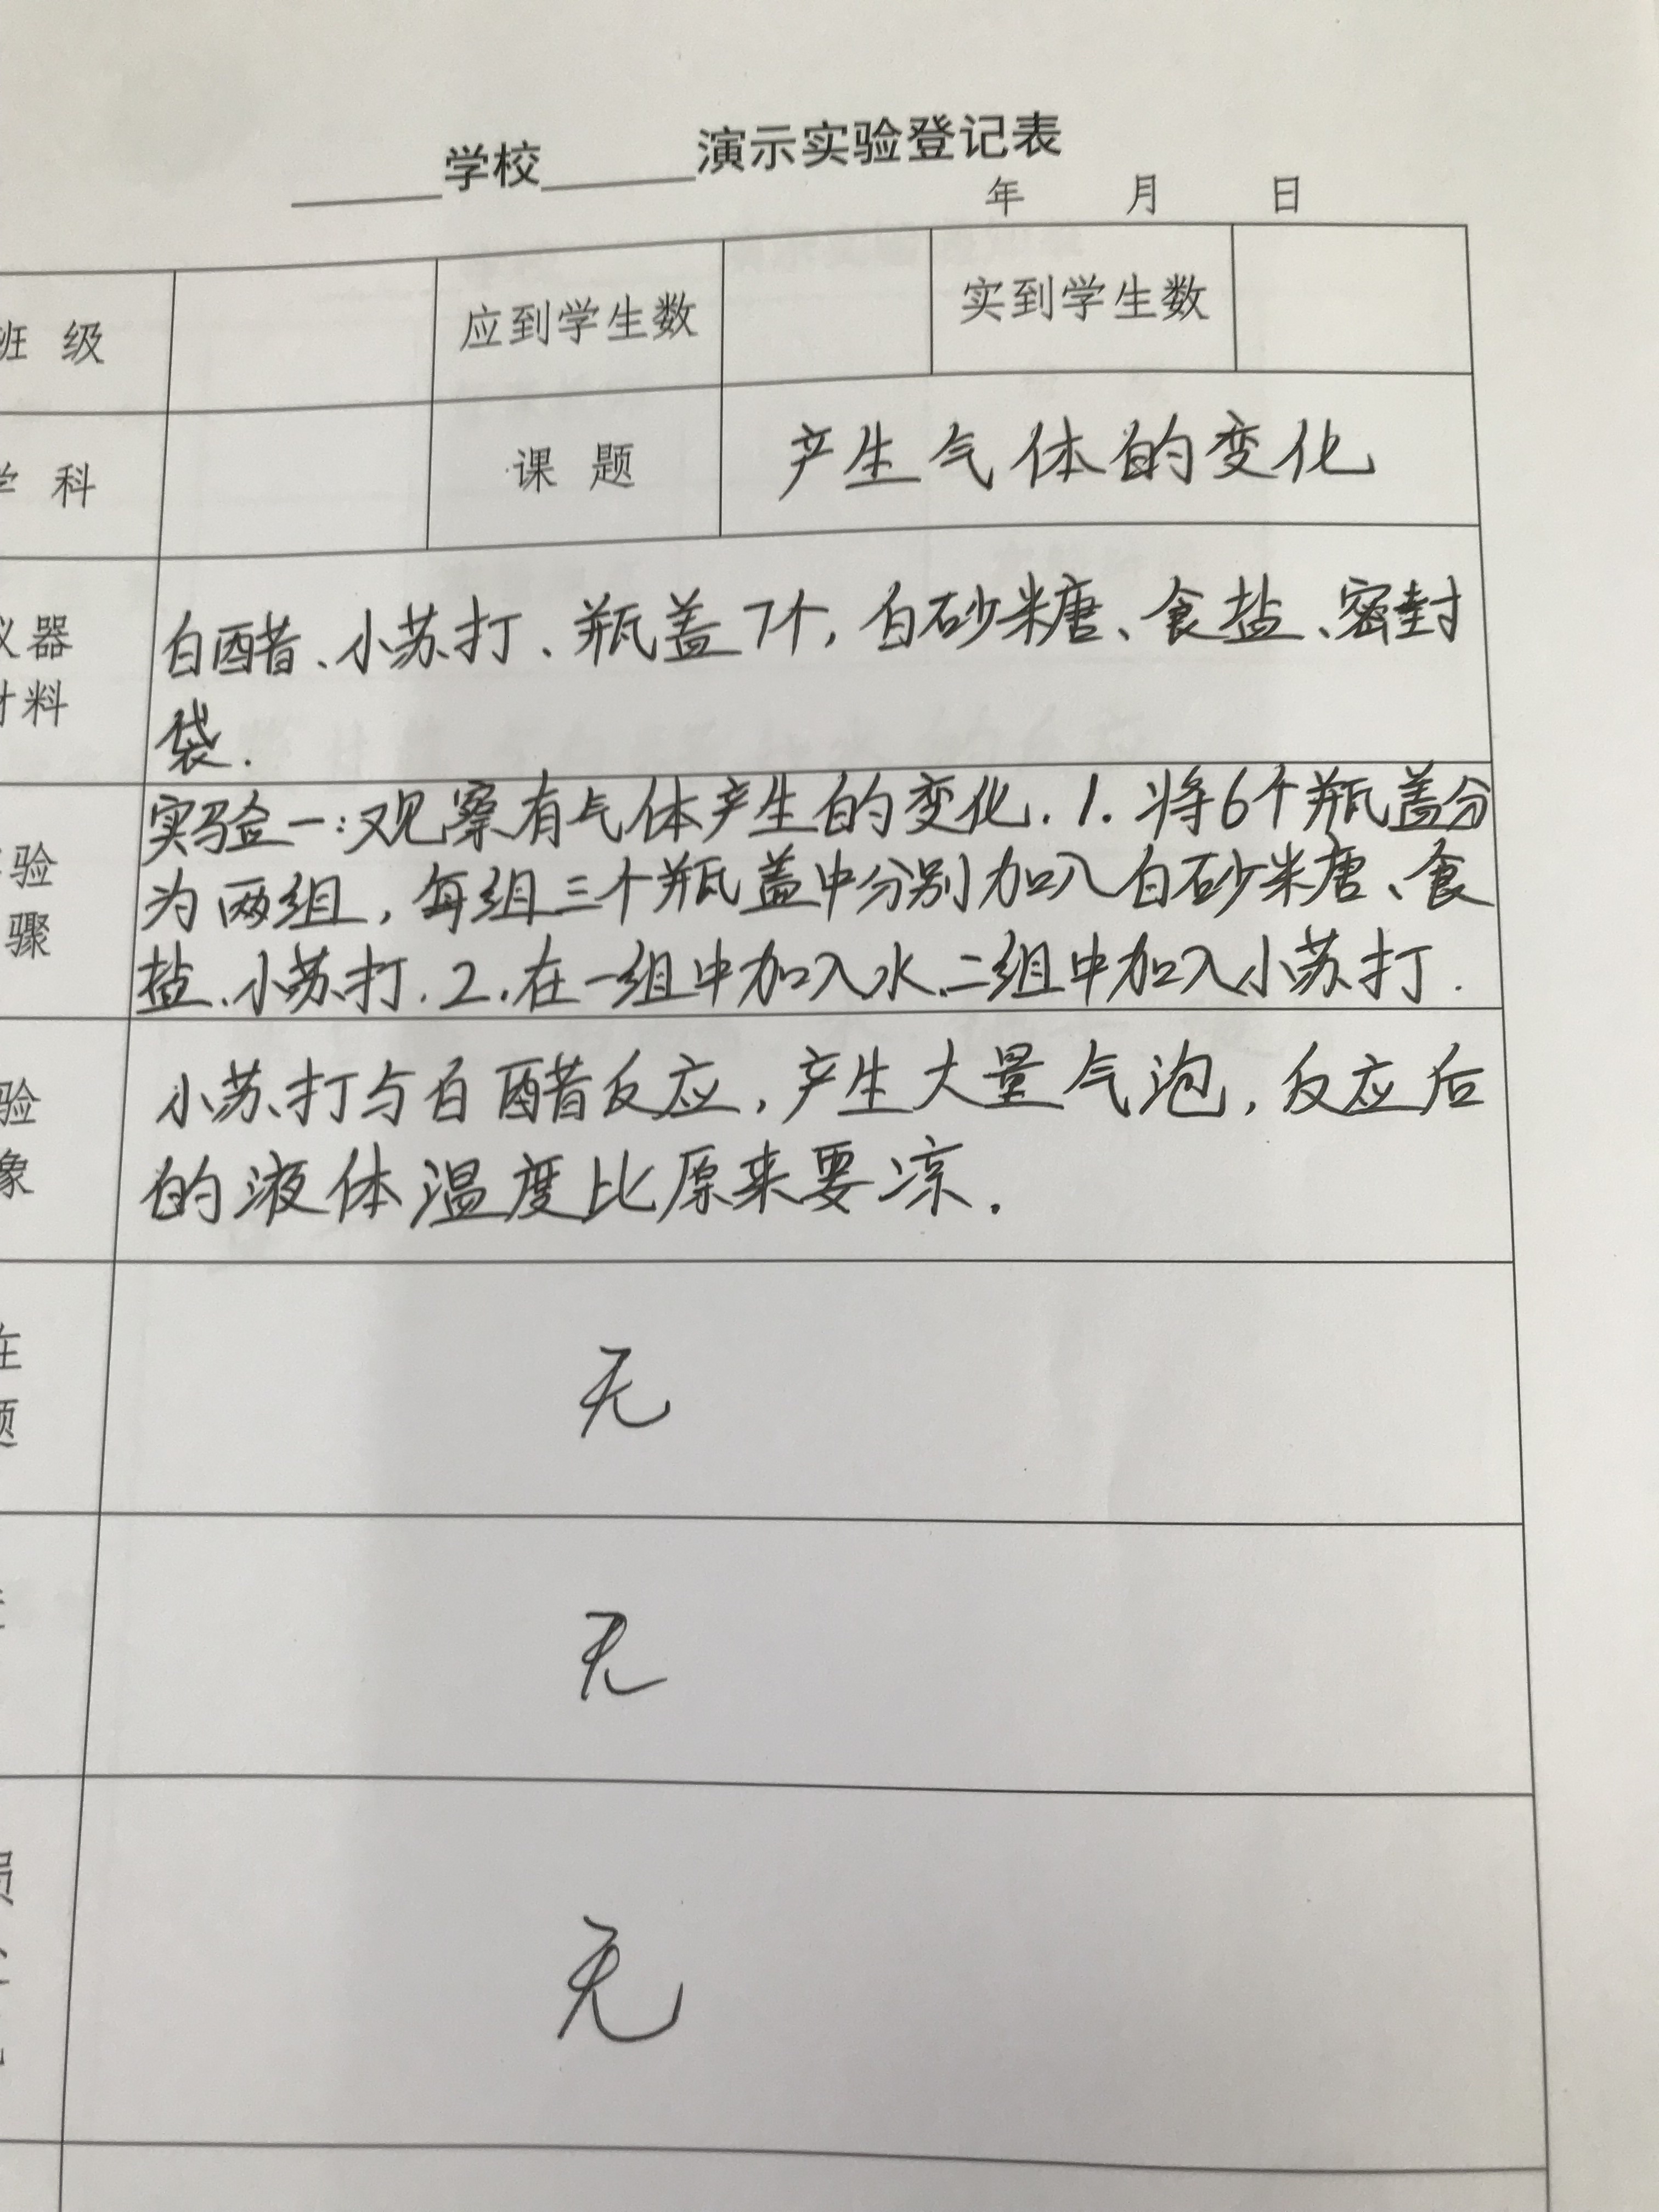 ______学校______演示实验登记表
年 月 日
班 级 应到学生数 实到学生数
学 科 课 题 产生气体的变化
仪器
材料
白醋、小苏打、瓶盖7个,白砂米糖、食盐、密封
袋.
验
骤
实验一:观察有气体产生的变化.1.将6个瓶盖分
为两组,每组三个瓶盖中分别加入白砂米糖、食
盐、小苏打.2.在一组中加入水、二组中加入小苏打.
验
象
小苏打与白醋反应,产生大量气泡,反应后
的液体温度比原来要凉.
在
题
无
无
损
无